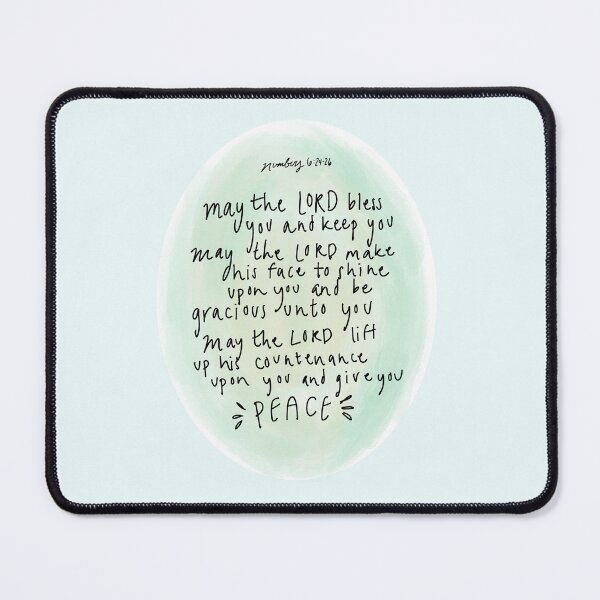 numbers 6:24-26
may the LORD bless
you and keep you
may the LORD make
his face to shine
upon you and be
gracious unto you
may the LORD lift
up his countenance
upon you and give you
PEACE